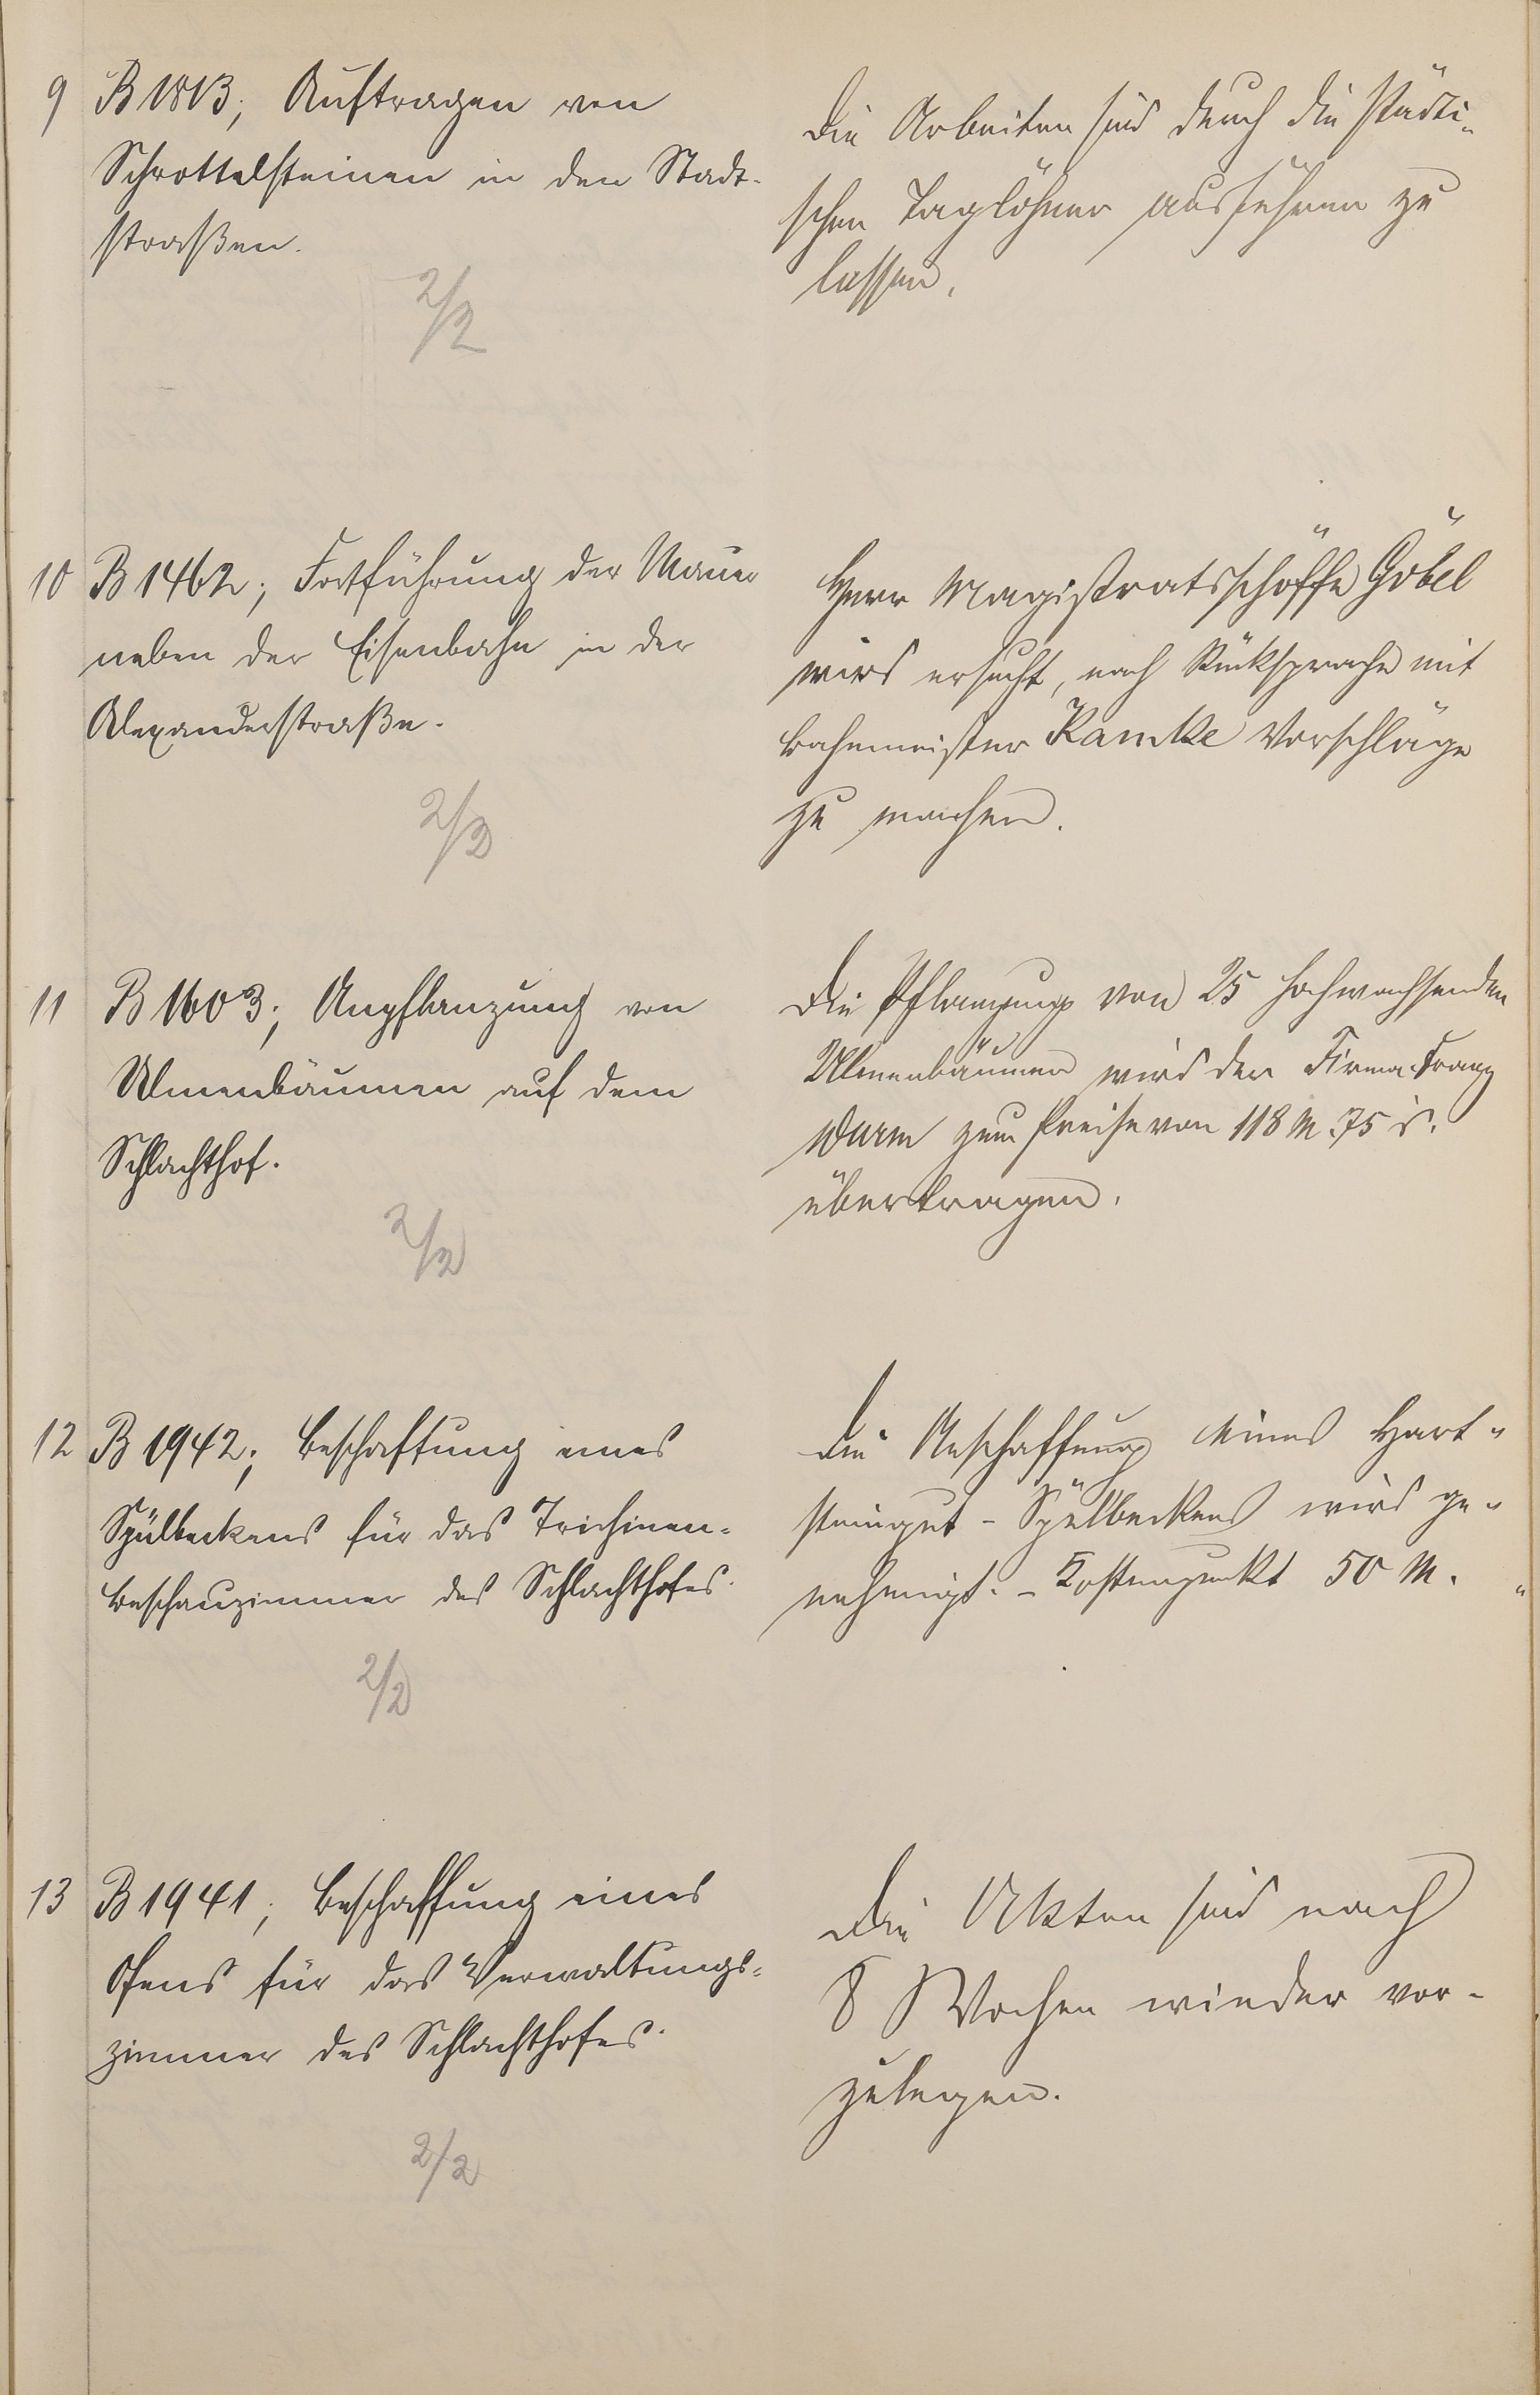 9 B 1813; Auftragen von
Schrottelsteinen in den Stadt-
straßen.
2/2
Die Arbeiten sind durch die städti-
schen Taglöhner ausführen zu
lassen.
10 B 1462; Fortführung der Mauer
neben der Eisenbahn in der
Alexanderstraße.
2/2
Herr Magistratsschöffe Göbel
wird ersucht, nach Rücksprache mit
Bahnmeister Ramke Vorschläge
zu machen.
11 B 1603; Anpflanzung von
Ulmenbäumen auf dem
Schlachthof.
2/2
Die Pflanzung von 25 hochwachsenden
Ulmenbäumen wird der Firma Franz
Wurm zum Preise von 118 M. 75
übertragen.
12 B 1942; Beschaffung eines
Spülbeckens für das Trichinen-
beschauzimmer des Schlachthofes.
2/2
Die Anschaffung eines Hart-
steingut-Spülbeckens wird ge-
nehmigt. - Kostenpunkt 50 M.
13 B 1941; Beschaffung eines
Ofens für das Verwaltungs-
zimmer des Schlachthofes.
2/2
Die Akten sind nach
8 Wochen wieder vor-
zulegen.